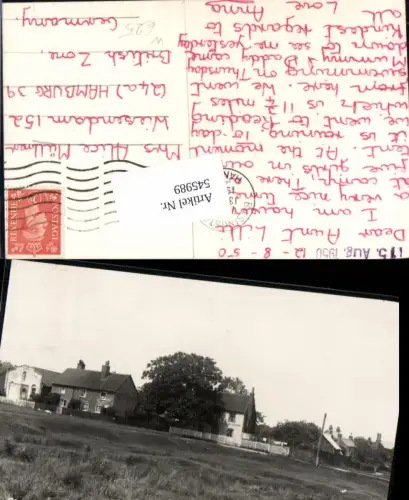 15. Aug. 1950
12 - 8 - 50
Dear Aunt Lille
I am having
a very nice time
at camp. There
five girls in our
tent. At the moment
it is raining. To-day
we went to Reading
which is 11½ miles
from here. We went
swimming on Thursday
Mummy & Daddy came
down to see me yesterday
Kindest regards to
all
Love Anna
Mrs Alice Millman
Wiesendam 152
(24a) HAMBURG 39
British Zone.
Germany.
W 625
POSTAGE
REVENUE
Artikel Nr.
545989